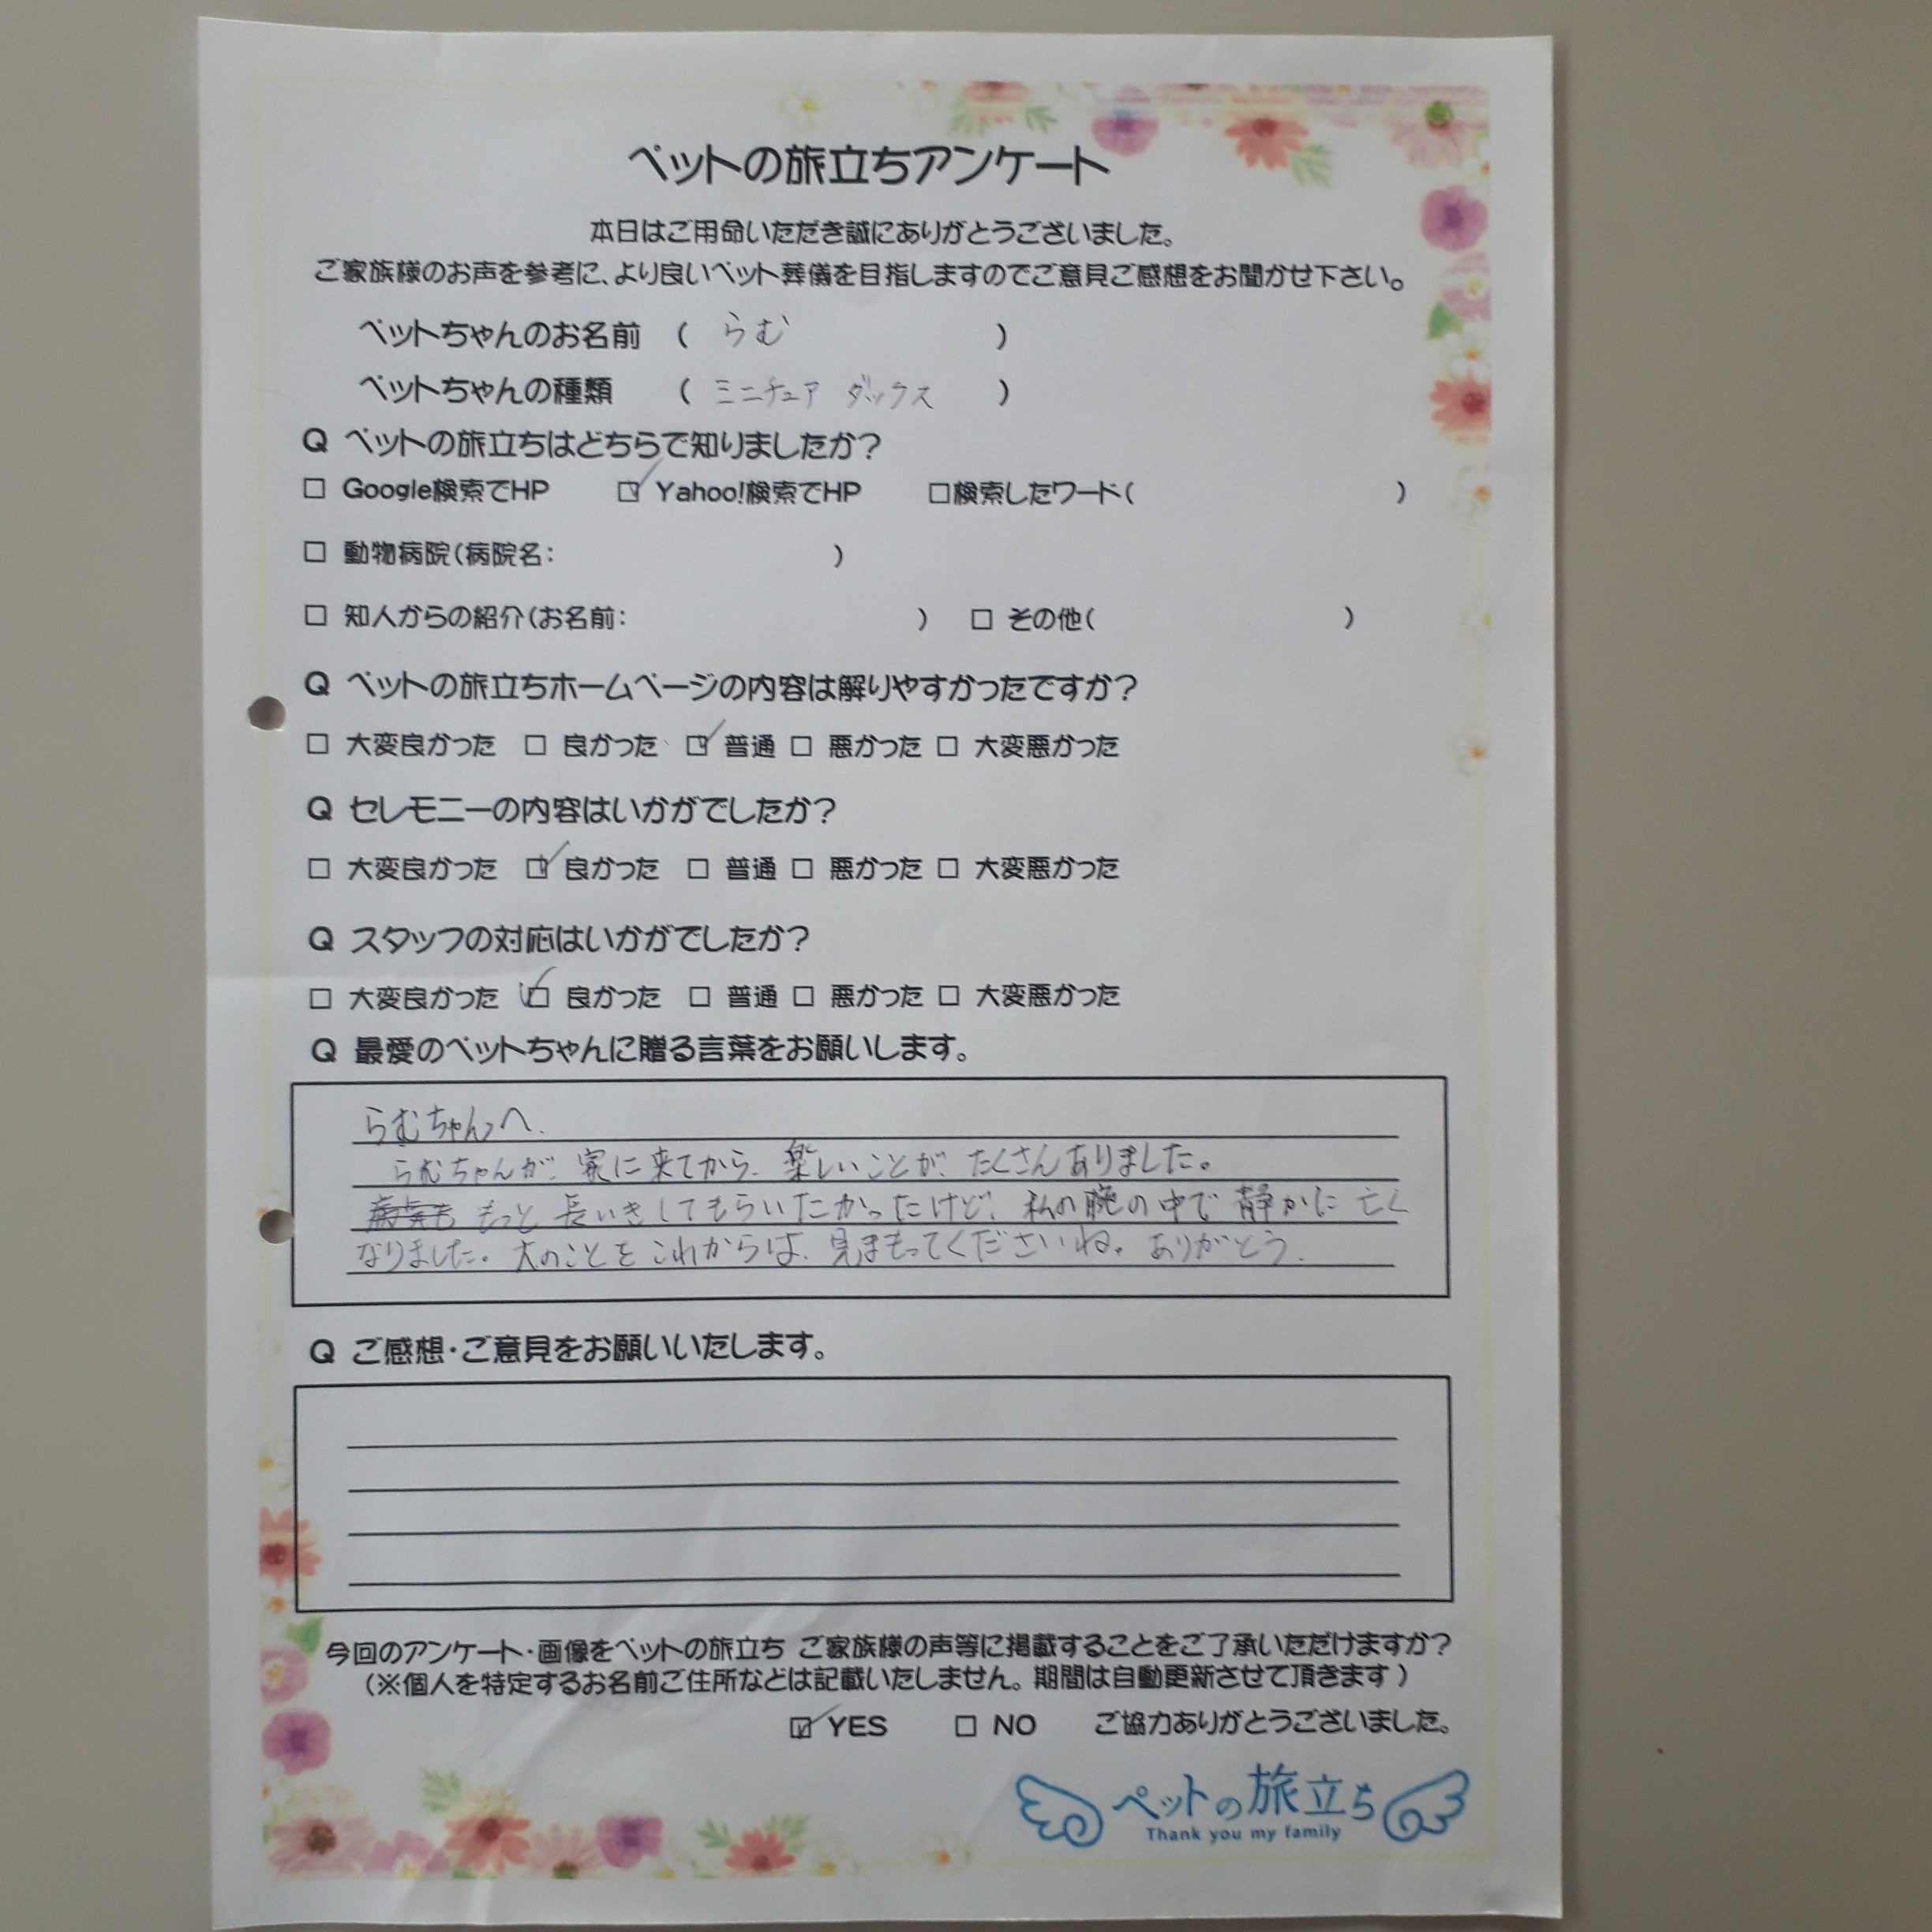 ペットの旅立ちアンケート
本日はご用命いただき誠にありがとうございました。
ご家族様のお声を参考に、より良いペット葬儀を目指しますのでご意見ご感想をお聞かせ下さい。
ペットちゃんのお名前 ( らむ )
ペットちゃんの種類 ( ミニチュア ダックス )
Q ペットの旅立ちはどちらで知りましたか?
□ Google検索でHP ☑ Yahoo!検索でHP □検索したワード( )
□ 動物病院(病院名: )
□ 知人からの紹介(お名前: ) □ その他( )
Q ペットの旅立ちホームページの内容は解りやすかったですか?
□ 大変良かった □ 良かった ☑ 普通 □ 悪かった □ 大変悪かった
Q セレモニーの内容はいかがでしたか?
□ 大変良かった ☑ 良かった □ 普通 □ 悪かった □ 大変悪かった
Q スタッフの対応はいかがでしたか?
□ 大変良かった ☑ 良かった □ 普通 □ 悪かった □ 大変悪かった
Q 最愛のペットちゃんに贈る言葉をお願いします。
らむちゃんへ.
らむちゃんが、家に来てから、楽しいことが、たくさんありました。
もっと 長いきしてもらいたかったけど、私の腕の中で 静かに 亡く
なりました。 のことを これからは、見まもってくださいね。ありがとう.
Q ご感想・ご意見をお願いいたします。
今回のアンケート・画像をペットの旅立ち ご家族様の声等に掲載することをご了承いただけますか?
(※個人を特定するお名前ご住所などは記載いたしません。期間は自動更新させて頂きます)
☑ YES □ NO ご協力ありがとうございました。
ペットの旅立ち
Thank you my family